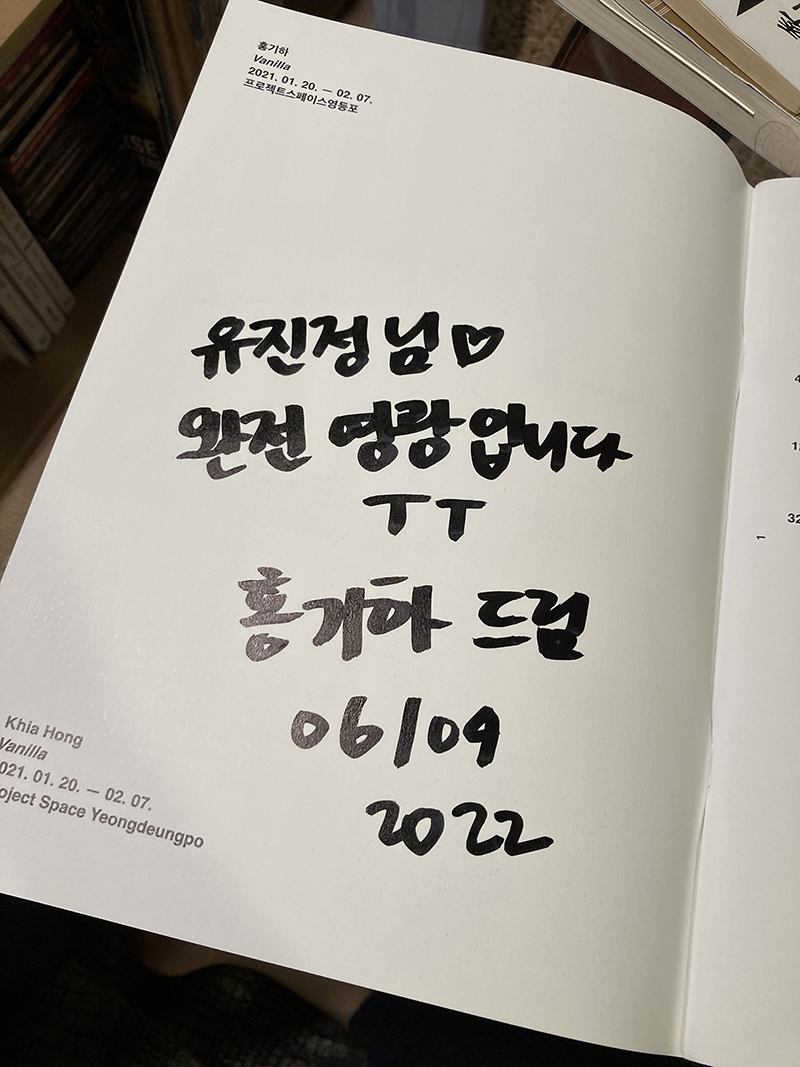 홍기하
Vanilla
2021. 01. 20. — 02. 07.
프로젝트스페이스영등포
유진정님♡
완전 영광입니다
ㅜㅜ
홍기하 드림
06/09
2022
Khia Hong
Vanilla
021. 01. 20. — 02. 07.
oject Space Yeongdeungpo
1
32